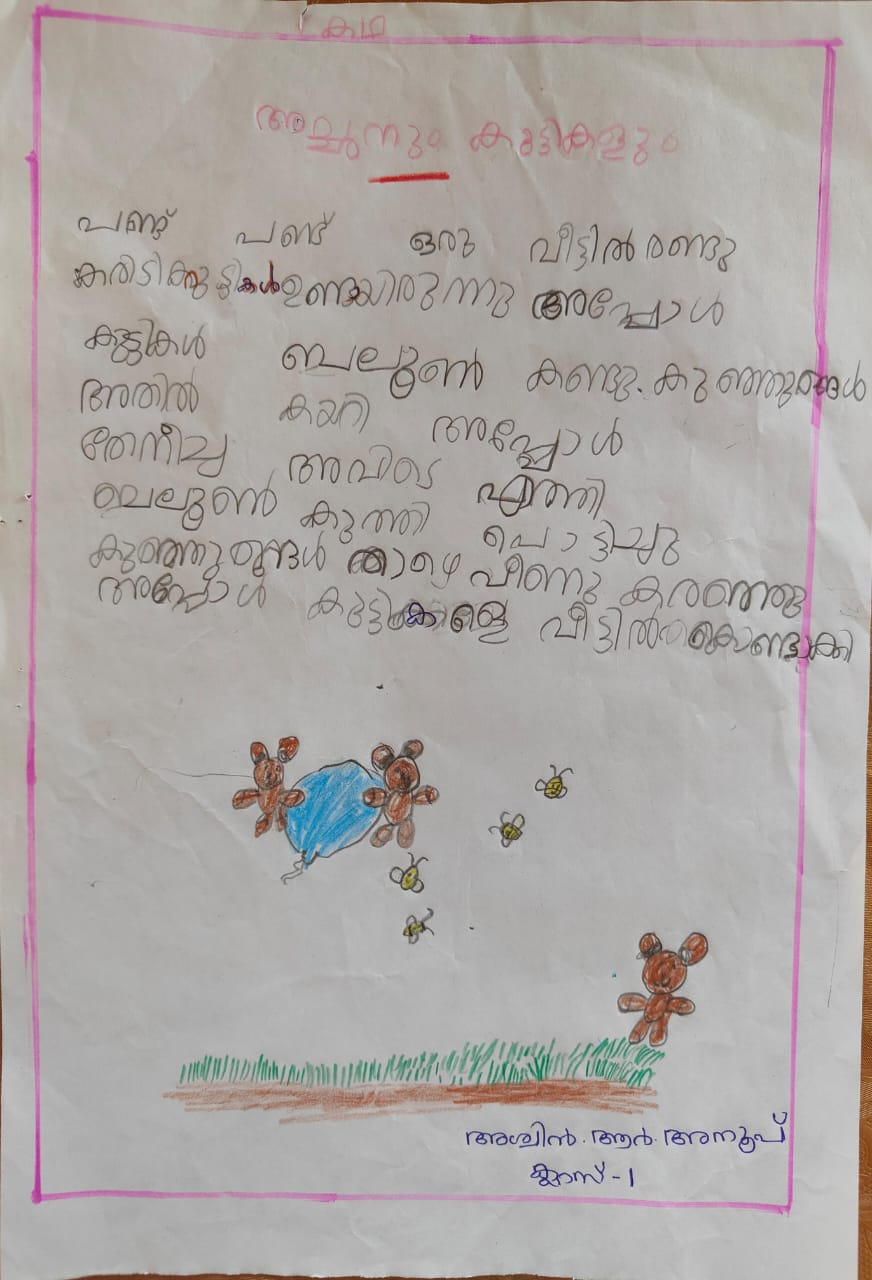 കഥ
അച്ഛനും കുട്ടികളും
പണ്ട് പണ്ട് ഒരു വീട്ടിൽ രണ്ടു
കരിടിക്കുട്ടികൾ ഉണ്ടായിരുന്നു അപ്പോൾ
കുട്ടികൾ ബലൂൺ കണ്ടു. കുഞ്ഞുങ്ങൾ
അതിൽ കയറി അപ്പോൾ
തേനീച്ച അവിടെ എത്തി
ബലൂൺ കുത്തി പൊട്ടിച്ചു
കുഞ്ഞുങ്ങൾ താഴെ വീണു കരഞ്ഞു
അപ്പോൾ കുട്ടികളെ വീട്ടിൽ കൊണ്ടാക്കി
അശ്വിൻ. ആർ. അനൂപ്
ക്ലാസ് - 1